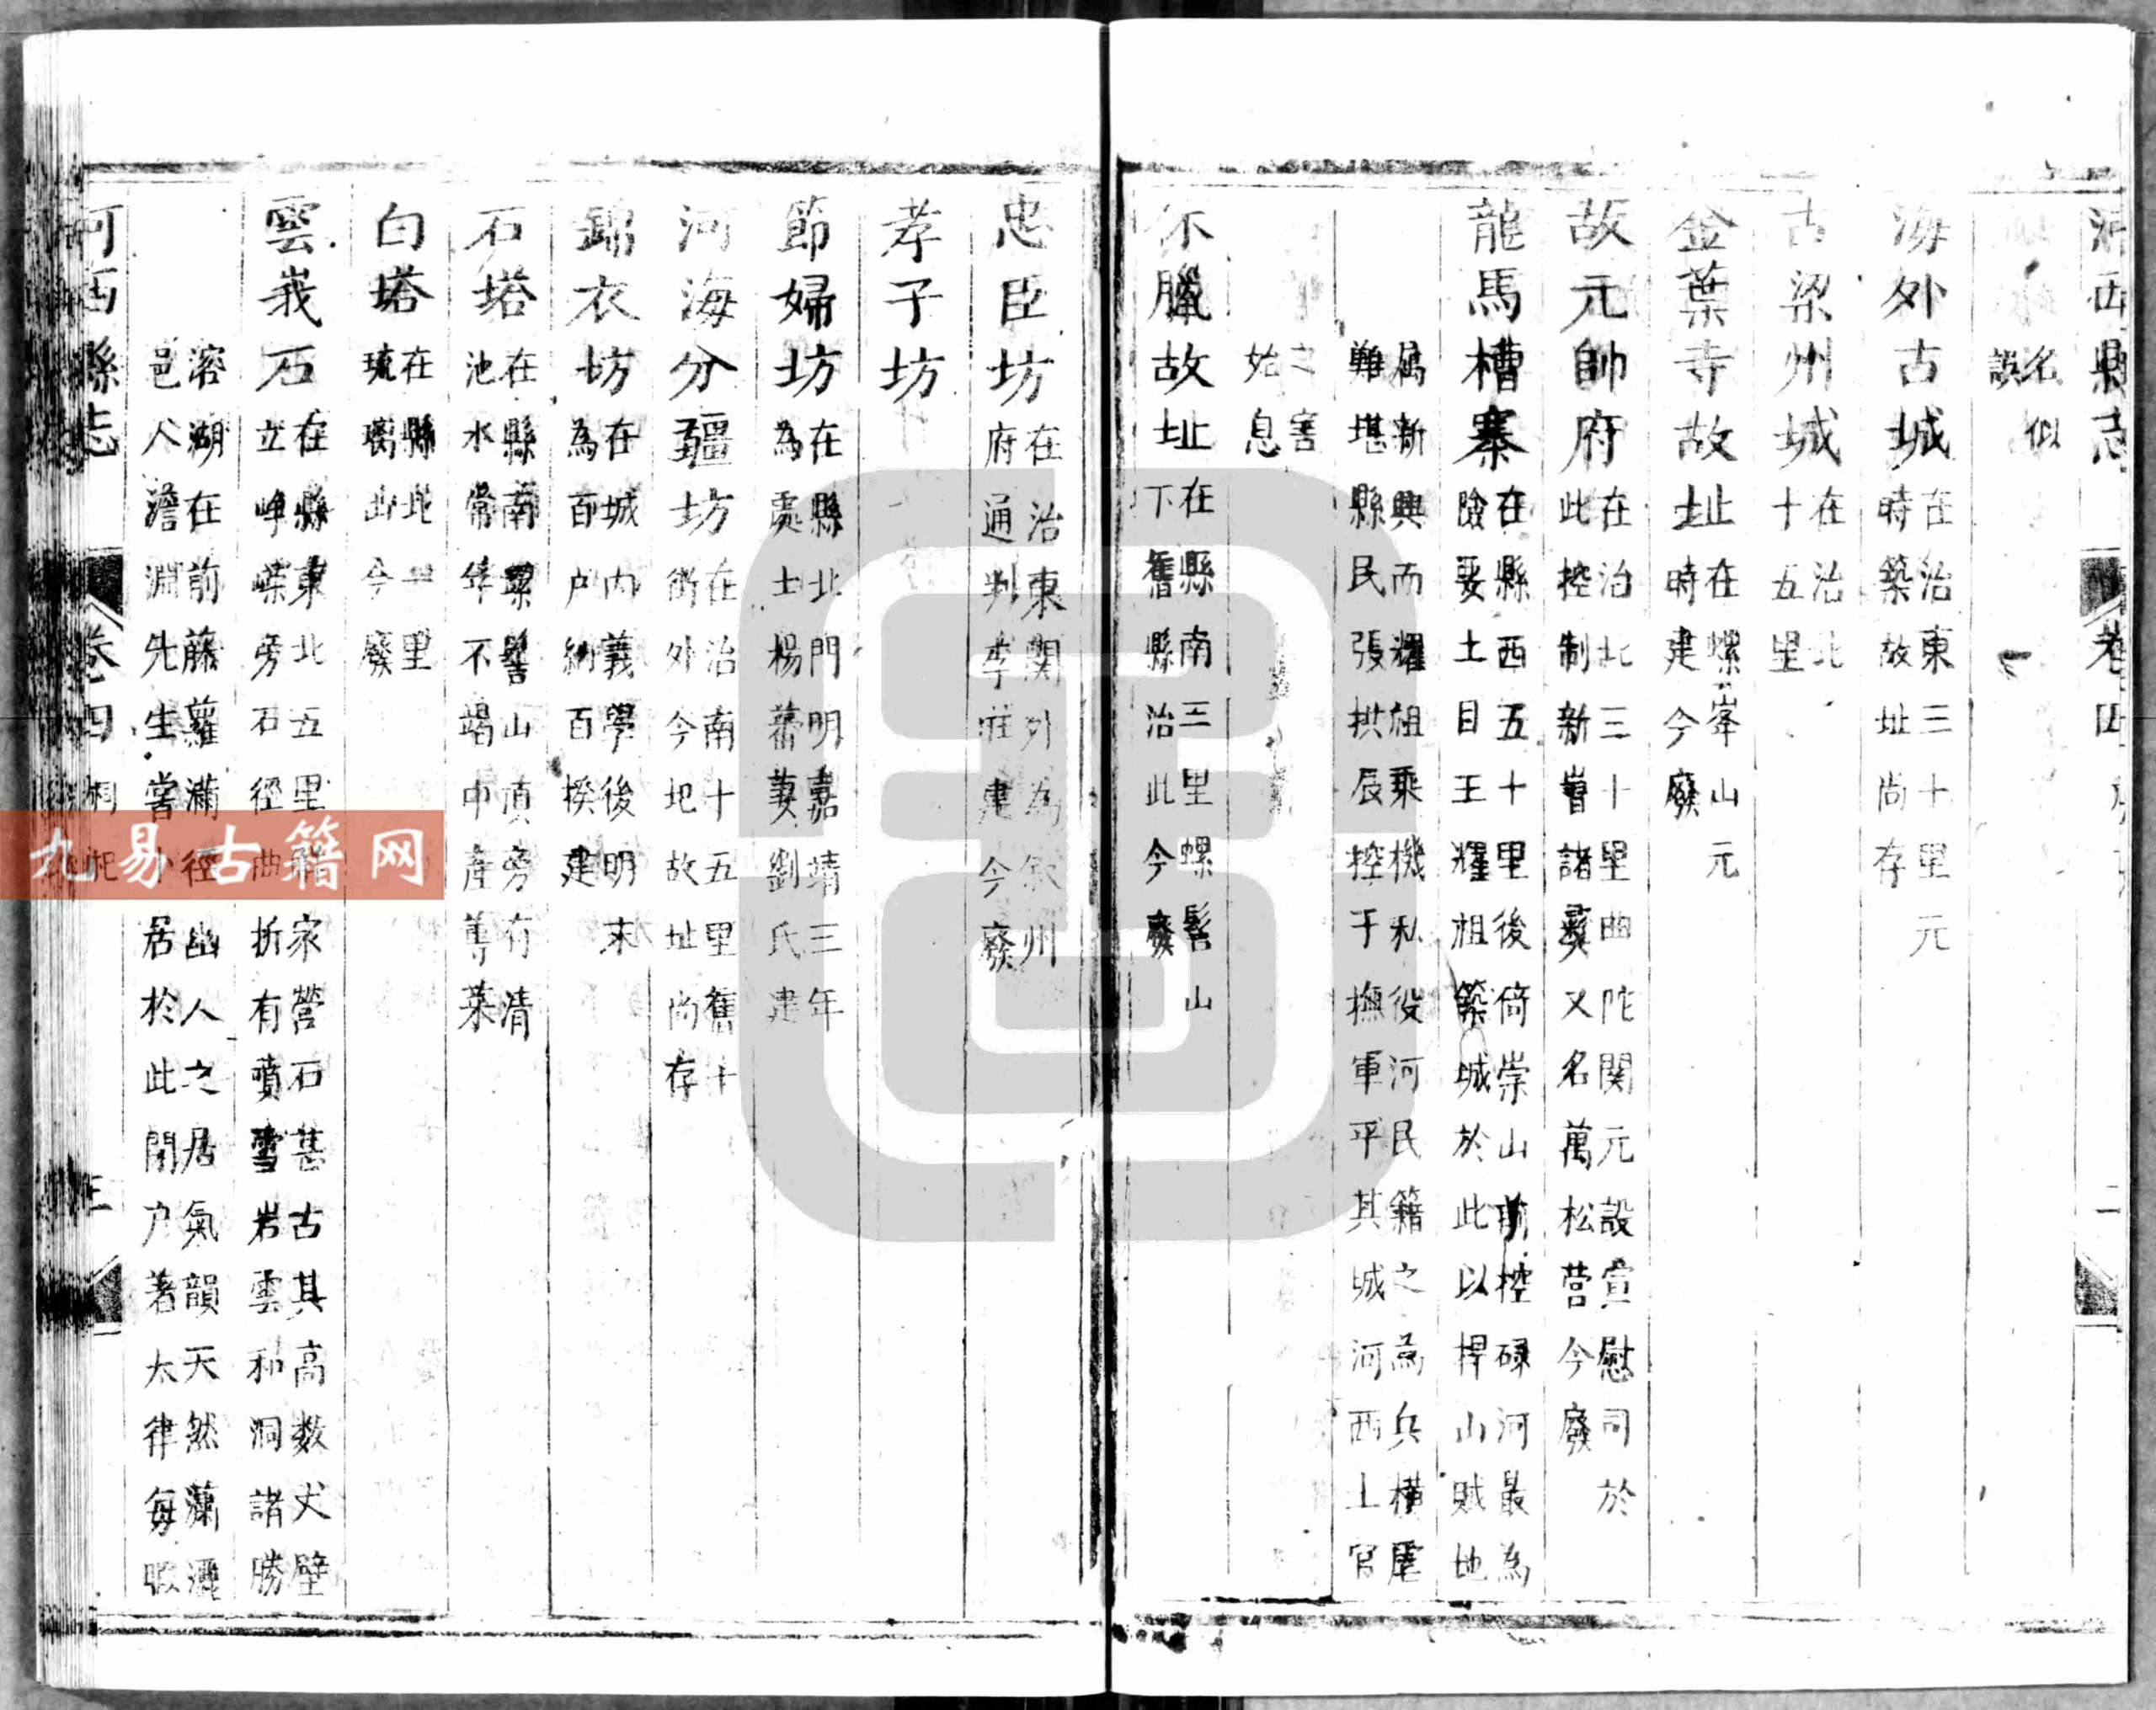 河西縣志 卷四 二
名似
誤
海外古城 在治東三十里元
時築故址尚存
古梁州城 在治北
十五里
金葉寺故址 在螺峯山元
時建今廢
故元帥府 在治北三十里曲陀関元設宣慰司於
此控制新嶍諸彝又名萬松营今廢
龍馬槽寨 在縣西五十里後倚崇山前控碌河最為
險要土目王耀祖築城於此以捍山賊地
属新興而耀祖乘機私役河民籍之為兵横虐
難堪縣民張拱辰控于撫軍平其城河西土官
之害
始息
休臘故址 在縣南三里螺髻山
下舊縣治此今廢
忠臣坊 在治東関外為 州
府通判李 建今廢
孝子坊
節婦坊 在縣北門明嘉靖三年
為處士楊蕃妻劉氏建
河海分疆坊 在治南十五里舊十
街外今圯故址尚存
錦衣坊 在城内義學後明末
為百户納百揆建
石塔 在縣南螺髻山頂旁有清
池水常年不竭中產蓴菜
白塔 在縣北 里
琉璃山今廢
雲峩石 在縣東北五里 家营石甚古其高数丈壁
立崢嶸旁石徑曲折有噴雪岩雲和洞諸勝
溶湖在前藤蘿滿徑幽人之居氣韻天然瀟灑
邑人澹淵先生嘗 居於此閉户著太律每
河西縣志 卷四 三
九易古籍网